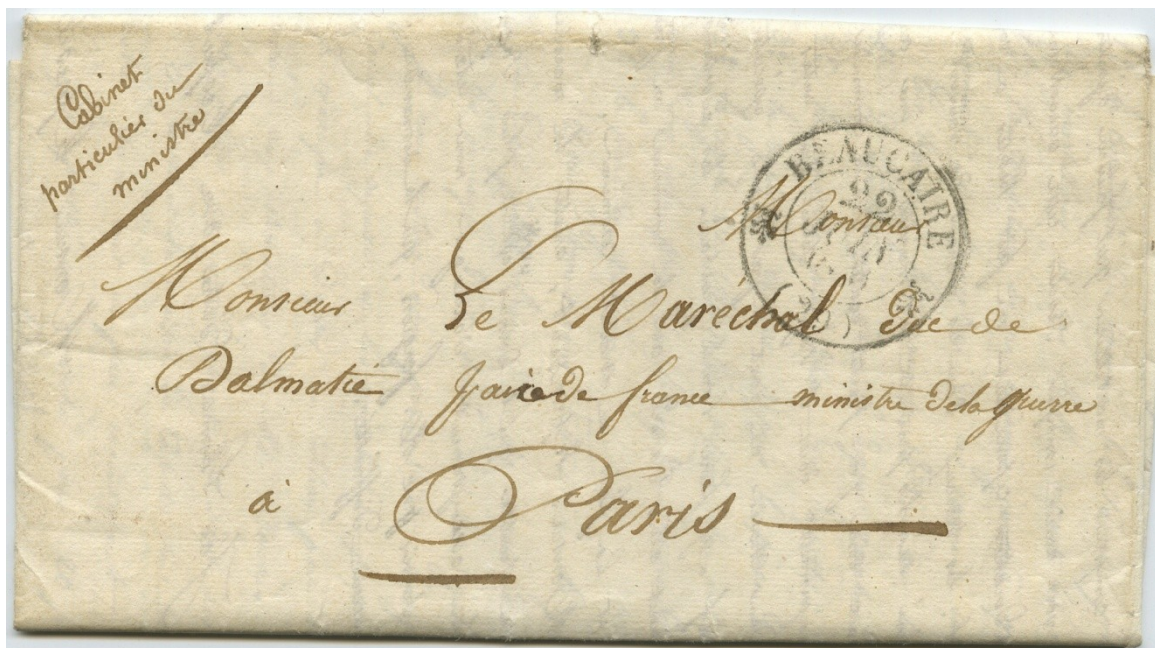 Cabinet
particulier du
ministre
BEAUCAIRE
22
Monsieur
Monsieur Le Maréchal Duc de
Dalmatie paire de france ministre de la guerre
à Paris